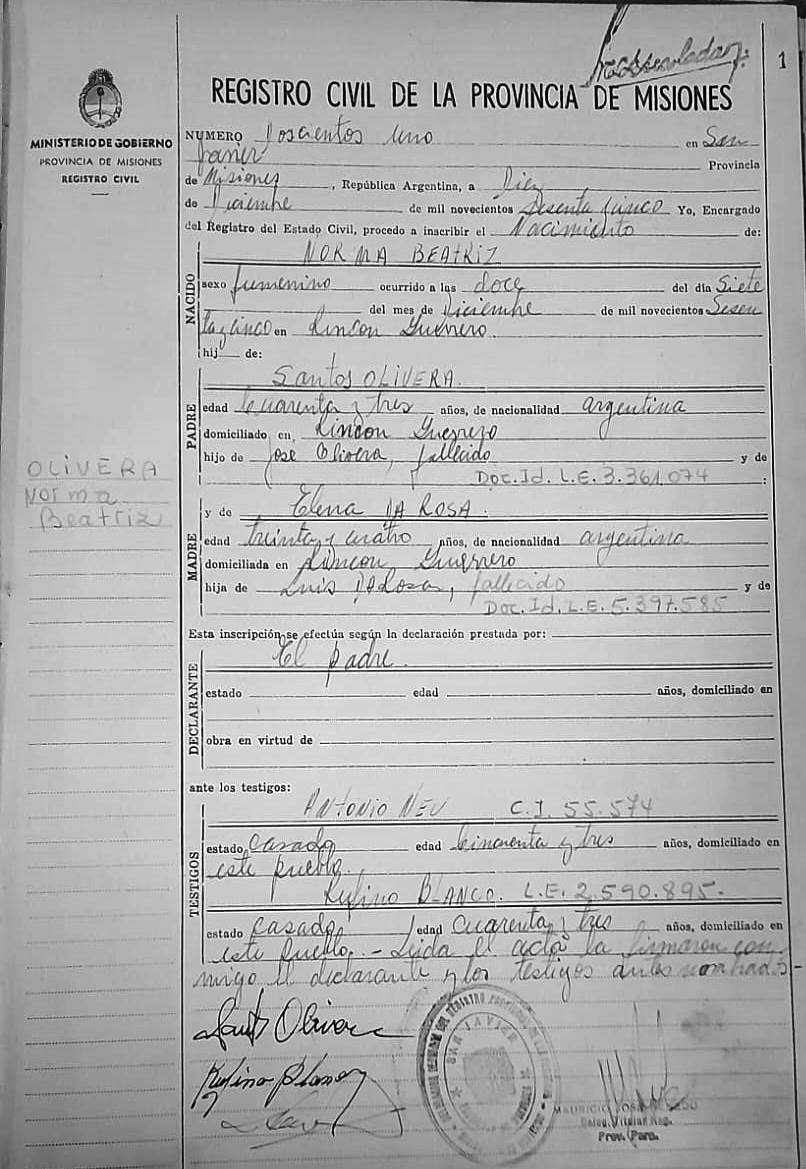 1
REGISTRO CIVIL DE LA PROVINCIA DE MISIONES
MINISTERIO DE GOBIERNO
PROVINCIA DE MISIONES
REGISTRO CIVIL
NUMERO Doscientos Uno en San
Javier Provincia
de Misiones, República Argentina, a Diez
de Diciembre de mil novecientos Sesenta Cinco Yo, Encargado
del Registro del Estado Civil, procedo a inscribir el Nacimiento de:
NACIDO
NORMA BEATRIZ
sexo femenino ocurrido a las doce del día Siete
del mes de Diciembre de mil novecientos Sesen
ta y cinco en Rincon Guerrero
hij de:
PADRE
Santos OLIVERA.
edad Cuarenta y tres años, de nacionalidad argentina
domiciliado en Rincon Guerrero
hijo de José Olivera, fallecido y de
Doc.Id. L.E. 3.361.074 :
OLIVERA
Norma
Beatriz
MADRE
y de Elena DA ROSA.
edad treinta y cuatro años, de nacionalidad argentina
domiciliada en Rincon Guerrero
hija de Luis DaRosa, fallecido y de
Doc.Id. L.E. 5.397.585
Esta inscripción se efectúa según la declaración prestada por:
DECLARANTE
El padre.
estado edad años, domiciliado en
obra en virtud de
ante los testigos:
TESTIGOS
ANTONIO NEU C.I. 55.574
estado Casado edad Cincuenta y tres años, domiciliado en
este pueblo.
Rufino BLANCO. L.E. 2.590.895.
estado Casado edad Cuarenta y tres años, domiciliado en
este Pueblo.- Leida el acta la firmaron con
migo el declarante y los testigos antes nombrados-
Santos Olivera
Rufino Blanco
SAN JAVIER
MAURICIO
Deleg. Titular Reg.
Prov. Pers.